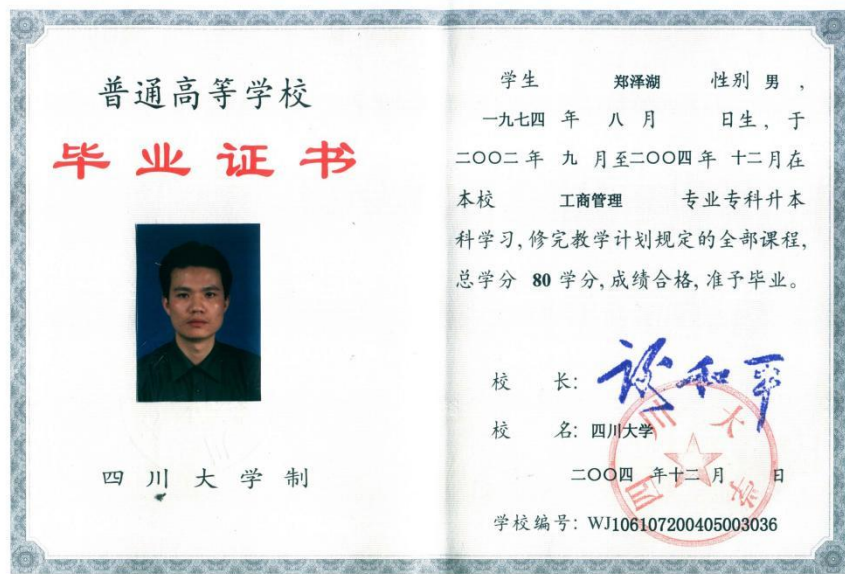 普通高等学校
毕业证书
四川大学制
学生 郑泽湖 性别 男，
一九七四 年 八 月 日生，于
二〇〇二 年 九 月至二〇〇四年 十二月在
本校 工商管理 专业专科升本
科学习，修完教学计划规定的全部课程，
总学分 80 学分，成绩合格，准予毕业。
校 长：谢和平
校 名：四川大学
四川大学
二〇〇四 年十二 月 日
学校编号：WJ106107200405003036